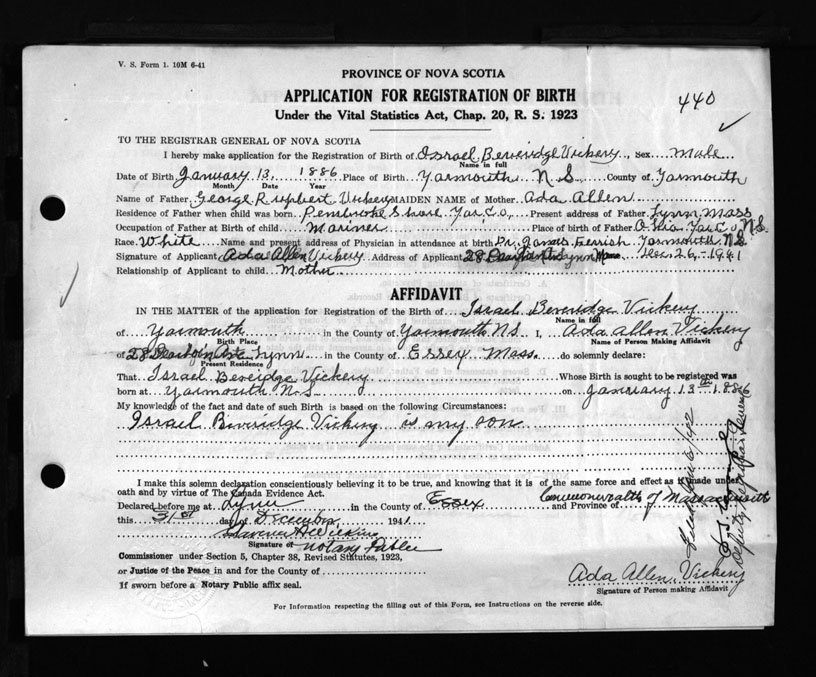 V. S. Form 1. 10M 6-41
PROVINCE OF NOVA SCOTIA
APPLICATION FOR REGISTRATION OF BIRTH
440
Under the Vital Statistics Act, Chap. 20, R. S. 1923
TO THE REGISTRAR GENERAL OF NOVA SCOTIA
I hereby make application for the Registration of Birth of Israel Beveridge Vickery, Sex Male
Name in full
Date of Birth January 13, 1886 Place of Birth Yarmouth N S County of Yarmouth
Month Date Year
Name of Father George Vickery MAIDEN NAME of Mother Ada Allen
Residence of Father when child was born Pembroke Shore Yar. Co. Present address of Father Lynn Mass
Occupation of Father at Birth of child Mariner Place of birth of Father Ohio Yar. Co N.S.
Race White Name and present address of Physician in attendance at birth Dr. James Yarmouth N.S.
Signature of Applicant Ada Allen Vickery Address of Applicant 28 Lynn Mass Dec 26, -1941
Relationship of Applicant to child Mother
AFFIDAVIT
IN THE MATTER of the application for Registration of the Birth of Israel Beveridge Vickery
Name in full
of Yarmouth in the County of Yarmouth N.S. I, Ada Allen Vickery
Birth Place Name of Person Making Affidavit
of 28 Lynn in the County of Essex Mass. do solemnly declare:
Present Residence
That Israel Beveidge Vickery Whose Birth is sought to be registered was
born at Yarmouth N.S. on January 13th 1886
My knowledge of the fact and date of such Birth is based on the following Circumstances:
Israel Beveridge Vickery is my son
I make this solemn declaration conscientiously believing it to be true, and knowing that it is of the same force and effect as if made under
oath and by virtue of The Canada Evidence Act.
Declared before me at Lynn in the County of Essex and Province of Commonwealth of Massachusetts
this 31st day of December 1941
Signature of Notary Public
Commissioner under Section 5, Chapter 38, Revised Statutes, 1923,
or Justice of the Peace in and for the County of
If sworn before a Notary Public affix seal.
Ada Allen Vickery
Signature of Person making Affidavit
For Information respecting the filling out of this Form, see Instructions on the reverse side.